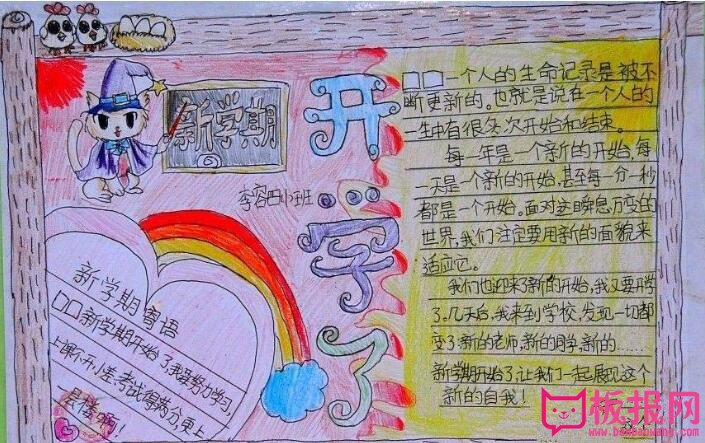 新学期
开学了
新学期寄语
□□新学期开始了,我要努力学习,
上课不开小差,考试得两分,更上
一层楼啊!
□□一个人的生命记录是被不
断更新的。也就是说在一个人的
一生中有很多次开始和结束。
每一年是一个新的开始,每
一天是一个新的开始,甚至每一分一秒
都是一个开始。面对这瞬息万变的
世界,我们注定要用新的面貌来
适应它。
我们也迎来了新的开始,我又要开学
了。几天后,我来到学校,发现一切都
变了:新的老师,新的同学,新的……
新学期开始了,让我们一起展现这个
新的自我!
板报网
www.banbaowang.com